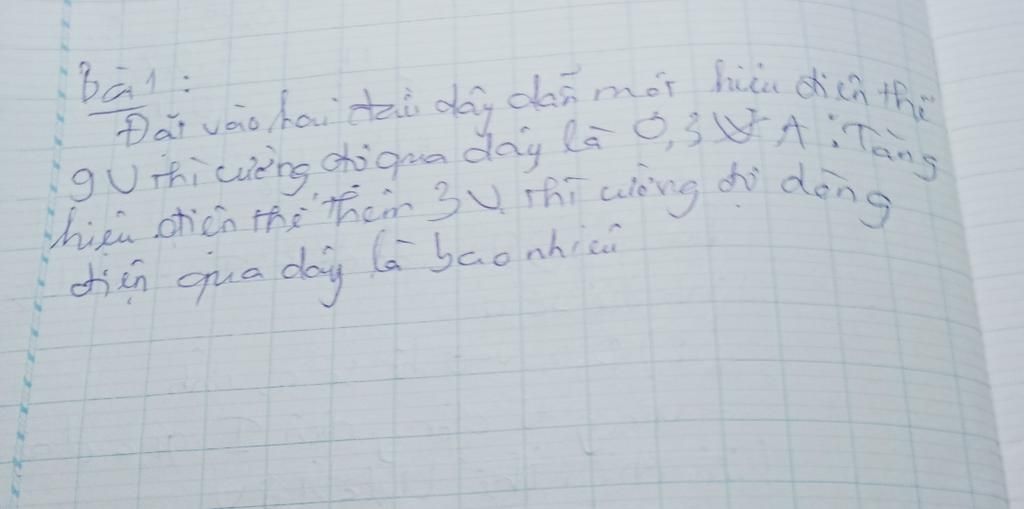 Bài 1:
Đặt vào hai đầu dây dẫn một hiệu điện thế
9V thì cường độ qua dây là 0,3 A. Tăng
hiệu điện thế thêm 3V thì cường độ dòng
điện qua dây là bao nhiêu